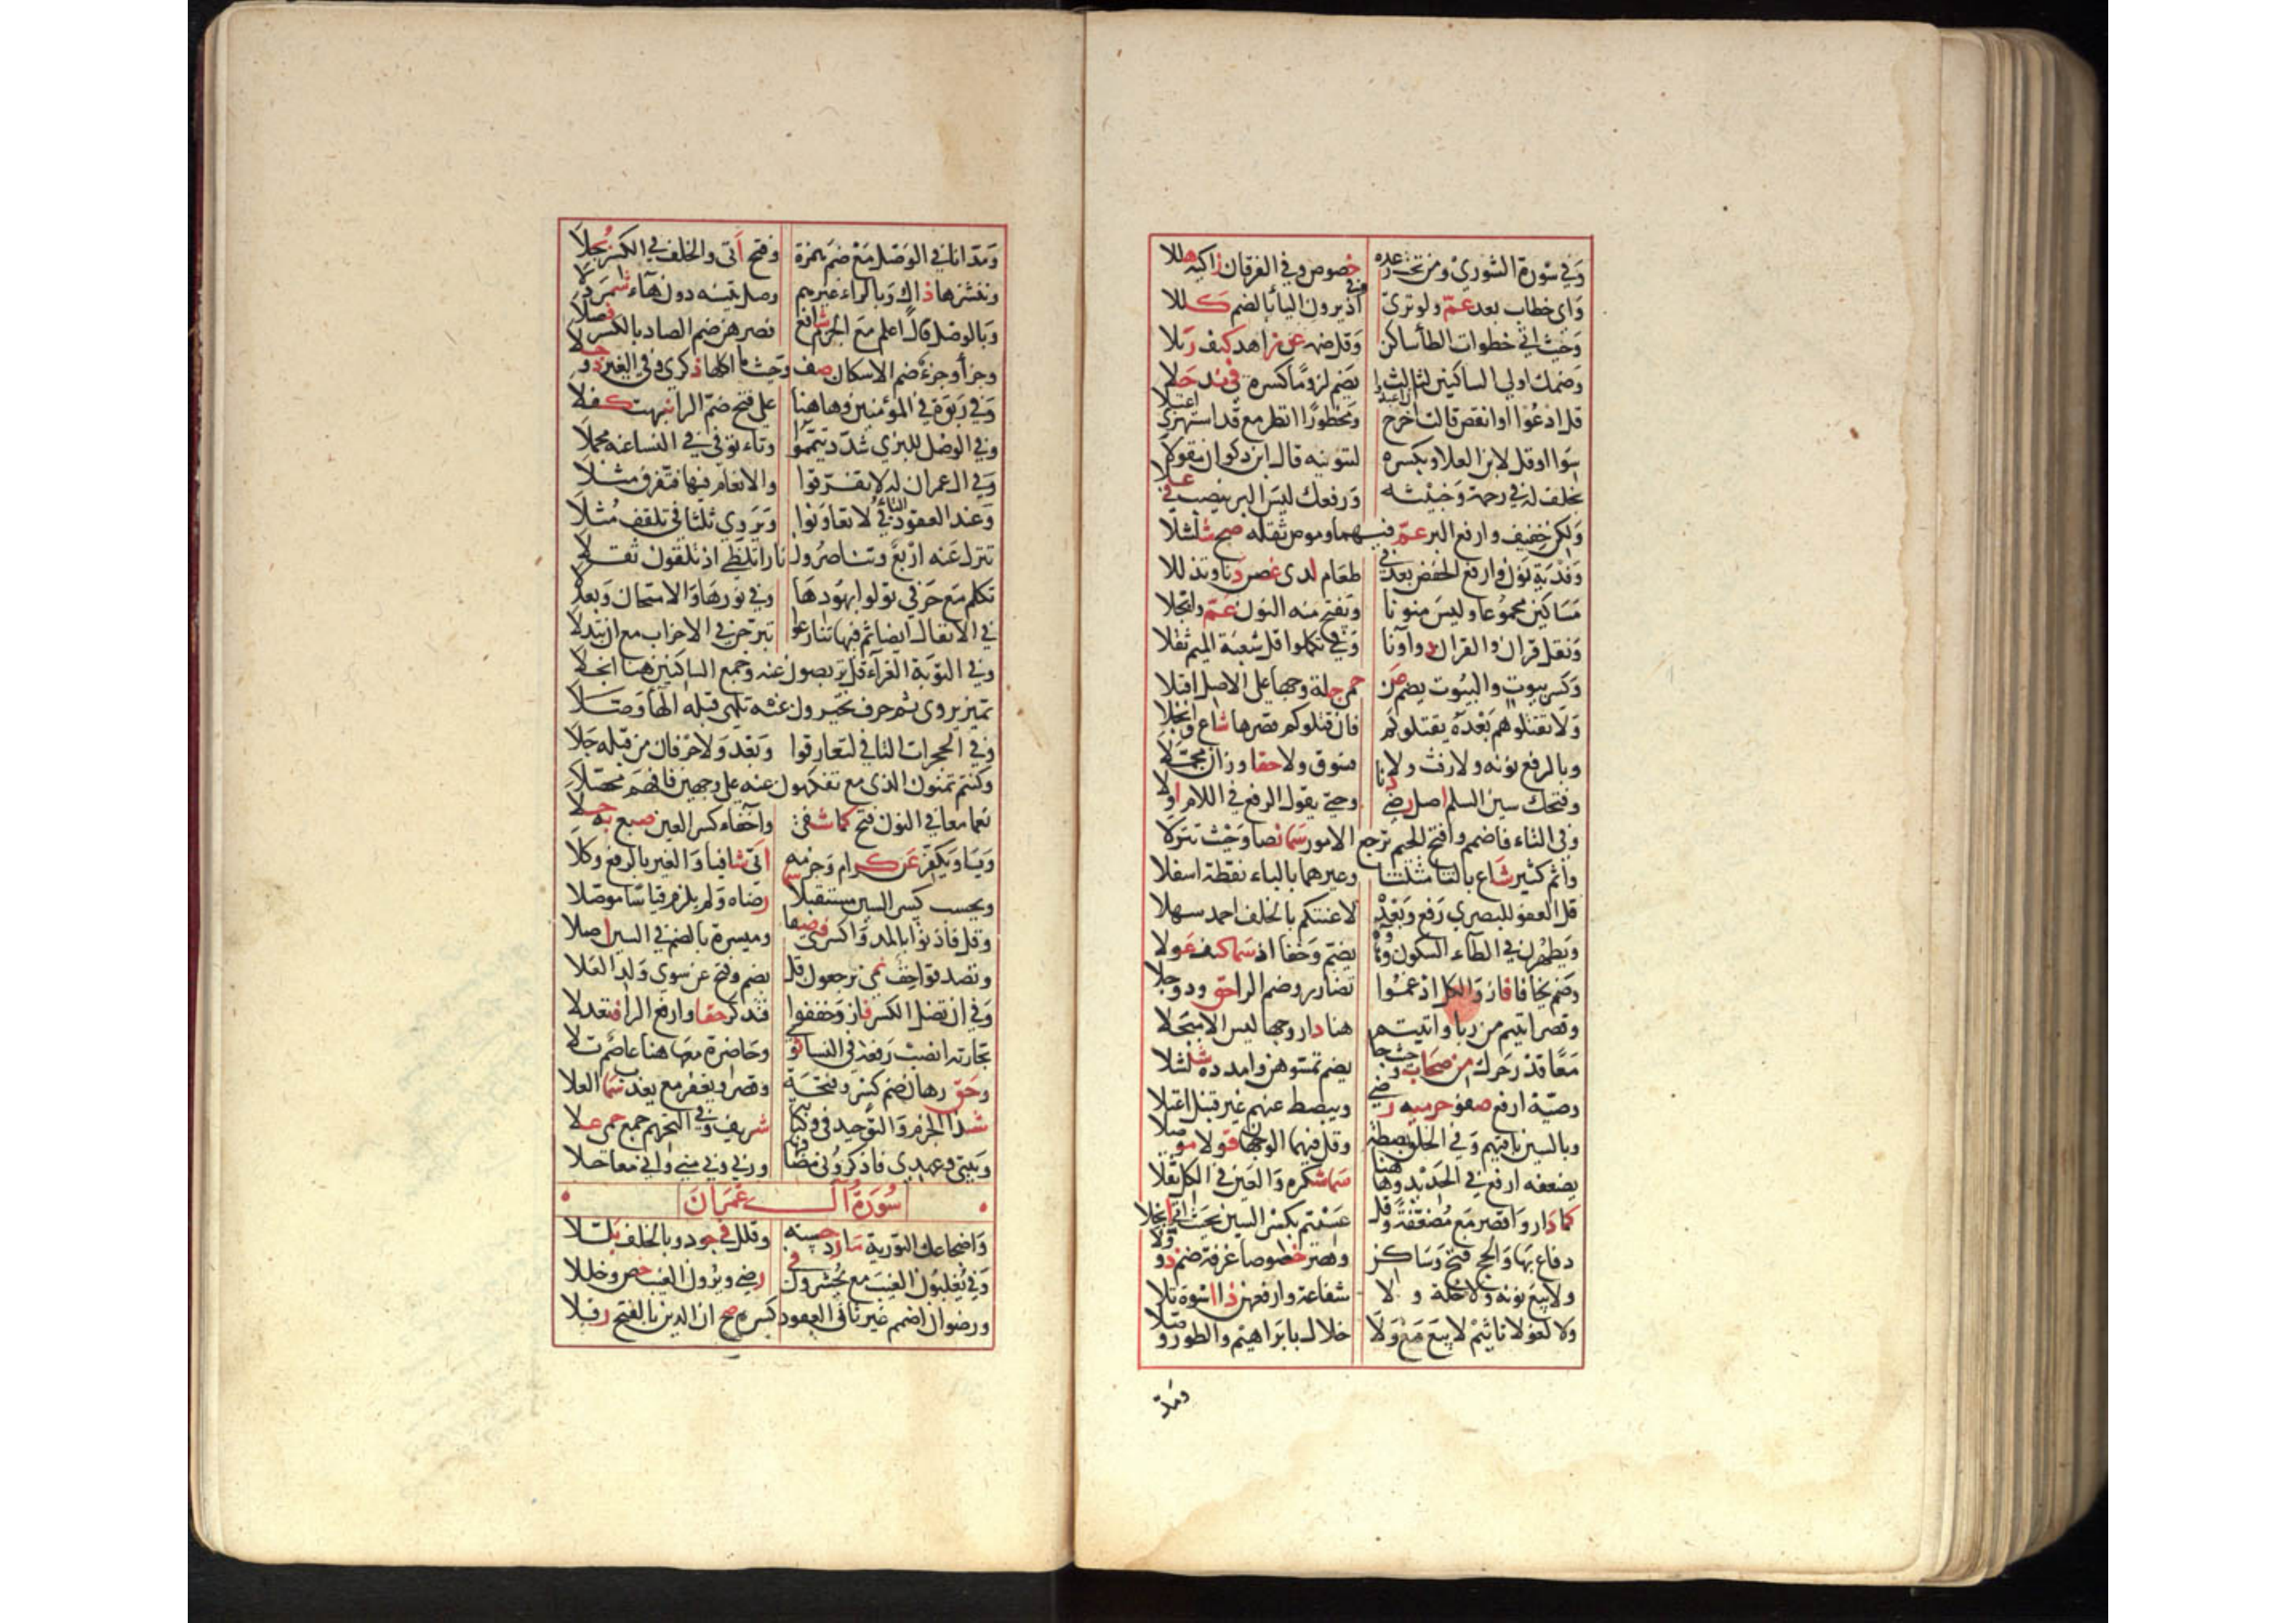 وفي سورة الشورى ومن تحت رعده خصوص وفي الفرقان زاكيه هللا
واي خطاب بعد عم ولو ترى وفي اذ يرون اليا بالضم كللا
وحيث اتى خطوات الطا ساكن وقل ضمه عن زاهد كيف رتلا
وضمك اولى الساكنين لثالث يضم لزوما كسره في ند حلا
قل ادعوا او انقص قالت اخرج ان اعبدوا ومحظورا انظر مع قد استهزى اعتلا
سوا او وقل لابن العلا وبكسره لتنوينه قال ابن ذكوان مقولا
بخلف له في رحمة وخبيثه ورفعك ليس البر ينصب في علا
ولكن خفيف وارفع البر عم فيهما وموص ثقله صح شلشلا
وفدية نون وارفع الخفض بعد في طعام لدى غصن دنا وتذللا
مساكين مجموعا وليس منونا وتفتح منه النون عم وابجلا
ونقل قران والقران دوآونا وفي تكملوا قل شعبة الميم ثقلا
وكسر بيوت والبيوت يضم عن حمى جلة وجها على الاصل اقبلا
ولا تقتلوهم بعده يقتلوكم فان قتلوكم قصرها شاع وانجلا
وبالرفع نونه ولا رفث ولا فسوق ولا حقا وزان مجملا
وفتحك سين السلم اصل رضى دنا وحتى يقول الرفع في اللام اولا
وفي التاء فاضمم وافتح الجيم ترجع الامور سما نصا وحيث تنزلا
واثم كثير شاع بالثا مثلثا وغيرهما بالباء نقطة اسفلا
قل العفو للبصري رفع وبعده لاعنتكم بالخلف احمد سهلا
ويطهرن في الطاء السكون وهاؤه يضم وخفا اذ سما كيف عولا
وضم يخافا فاز والكل ادغموا تضارر وضم الرا حق وذو جلا
وقصر اتيتم من ربا واتيتم هنا دار وجها ليس الا مبجلا
معا قدر حرك من صحاب وحيث جا يضم تمسوهن وامدده شلشلا
وصية ارفع صفو حرميه رضى ويبصط عنهم غير قنبل اعتلا
وبالسين باقيهم وفي الخلق بصطة وقل فيهما الوجهان قولا موصلا
يضعفه ارفع في الحديد وهاهنا سما شكره والعين في الكل ثقلا
كما دار واقصر مع مضعفة وقل عسيتم بكسر السين حيث اتى انجلا
دفاع بها والحج فتح وساكن وقصر خصوصا غرفة ضم ذو ولا
ولا بيع نونه ولا خلة ولا شفاعة وارفعهن ذا اسوة تلا
ولا لغو لا تاثيم لا بيع مع ولا خلال بابراهيم والطور وصلا
ومد
ومد انا في الوصل مع ضم همزة وفتح اتى والخلف في الكسر بجلا
وننشزها ذاك وبالراء غيرهم وصل يتسنه دون هاء شمردلا
وبالوصل قال اعلم مع الجزم شافع فصرهن ضم الصاد بالكسر فصلا
وجزأ وجزء ضم الاسكان صف وحيثما اكلها ذكرى وفي الغير ذو حلا
وفي ربوة في المؤمنين وهاهنا على فتح ضم الرا نبهت كفلا
وفي الوصل للبزي شدد تيمموا وتاء توفى في النسا عنه مجملا
وفي ال عمران له لا تفرقوا والانعام فيها فتفرق مثلا
وعند العقود التاء في لا تعاونوا ويروي ثلثا في تلقف مثلا
تنزل عنه اربع وتناصرون نارا تلظى اذ تلقون ثقلا
تكلم مع حرفي تولوا بهودها وفي نورها والامتحان وبعد لا
في الانفال ايضا ثم فيها تنازعوا تبرجن في الاحزاب مع ان تبدلا
وفي التوبة الغراء قل تربصون عنه وجمع الساكنين هنا انجلا
تميز يروى ثم حرف تخيرون عنه تلهى قبله الهاء وصلا
وفي الحجرات التا في لتعارفوا وبعد ولا حرفان من قبله جلا
وكنتم تمنون الذي مع تفكهون عنه على وجهين فافهم محصلا
نعما معا في النون فتح كما شفى واخفاء كسر العين صيغ به حلا
ويا ويكفر عن كرام وجزمه اتى شافيا والغير بالرفع وكلا
ويحسب كسر السين مستقبلا سما رضاه ولم يلزم قياسا موصلا
وقل فاذنوا بالمد واكسر فتى صفا وميسرة بالضم في السين اصلا
وتصدقوا خف نمى ترجعون قل بضم وفتح عن سوى ولد العلا
وفي ان تضل الكسر فاز وخففوا فتذكر حقا وارفع الرا فتعدلا
تجارة انصب رفعه في النسا ثوى وحاضرة معها هنا عاصم تلا
وحق رهان ضم كسر وفتحة وقصر ويغفر مع يعذب سما العلا
شذا الجزم والتوحيد في وكتابه شريف وفي التحريم جمع حمى علا
وبيتي وعهدي فاذكروني مضافها وربي وبي مني واني معا حلا
سورة آل عمران
واضجاعك التورية ما رد حسنه وقلل في جود وبالخلف بللا
وفي تغلبون الغيب مع تحشرون في رضى ويرون الغيب خص وخللا
ورضوان اضمم غير ثاني العقود كسره صح ان الدين بالفتح رفلا